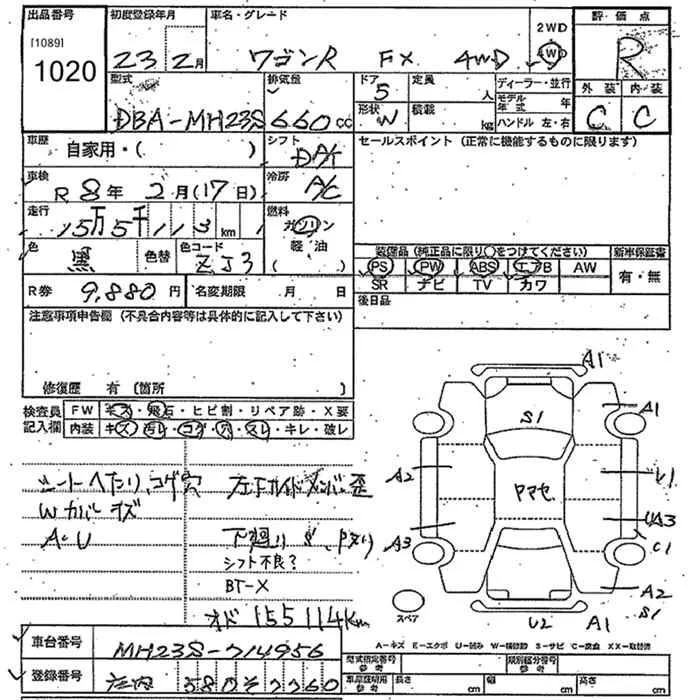 出品番号 初度登録年月 車名・グレード 評価点
[1089]
1020
23 2月 ワゴンR FX 4WD 2WD 4WD R
型式 排気量 ドア 定員 ディーラー・並行 外装 内装
DBA-MH23S 660cc 5 人 モデル年式 年 C C
形状 W 積載 kg ハンドル 左・右
車歴 自家用・( ) シフト DA/T セールスポイント (正常に機能するものに限ります)
車検 R 8年 2月(17日) 冷房 A/C
走行 15万5千113km 燃料 ガソリン
軽油
( )
色 黒 色替 色コード ZJ3
装備品 (純正品に限り○をつけてください) 新車保証書
PS PW ABS エアB AW 有・無
SR ナビ TV カワ
R券 9,880円 名変期限 月 日 後日品
注意事項申告欄 (不具合内容等は具体的に記入して下さい)
修復歴 有 (箇所
検査員記入欄 FW キズ・飛石・ヒビ割・リペア跡・X要
内装 キズ・汚レ・コゲ・穴・スレ・キレ・破レ
シートヘたり、コゲ穴 左下サイドメンバー歪
Wカバーキズ
A・U 下廻りS
シフト不良?
BT-X
オド 155114km
A1
A1
S1
A2
ヤマセ
A3
UA3
C1
A2
S1
スペア
U2 A1
A-キズ E-エクボ U-凹み W-補修跡 S-サビ C-腐食 XX-取替済
車台番号 MH23S-714956
登録番号 580
型式指定番号 類別区分番号
車庫証明用参考 長さ cm 幅 cm 高さ cm